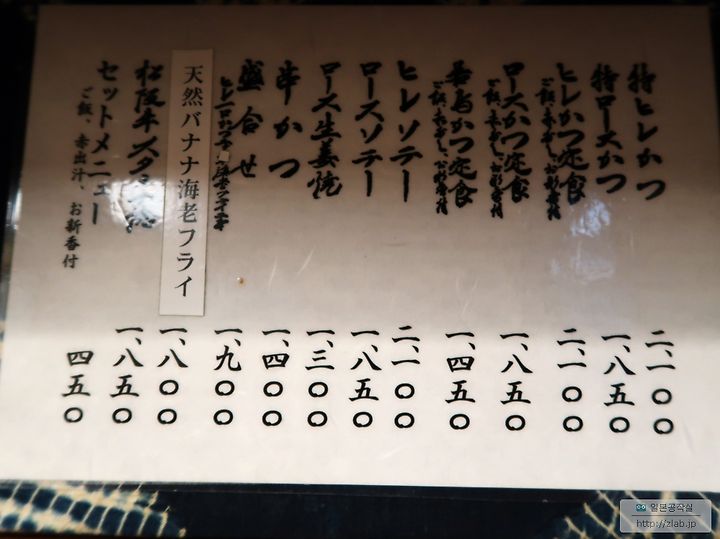 特ヒレかつ 二、一〇〇
特ロースかつ 一、八五〇
ヒレかつ定食 二、一〇〇
ご飯、赤だし、お新香付
ロースかつ定食 一、八五〇
ご飯、赤だし、お新香付
若鳥かつ定食 一、四五〇
ご飯、赤だし、お新香付
ヒレソテー 二、一〇〇
ロースソテー 一、八五〇
ロース生姜焼 一、三〇〇
串かつ 一、四〇〇
盛合せ 一、九〇〇
天然バナナ海老フライ 一、八〇〇
松阪牛 一、八五〇
セットメニュー 四五〇
ご飯、赤出汁、お新香付
일본공작실
http://zlab.jp